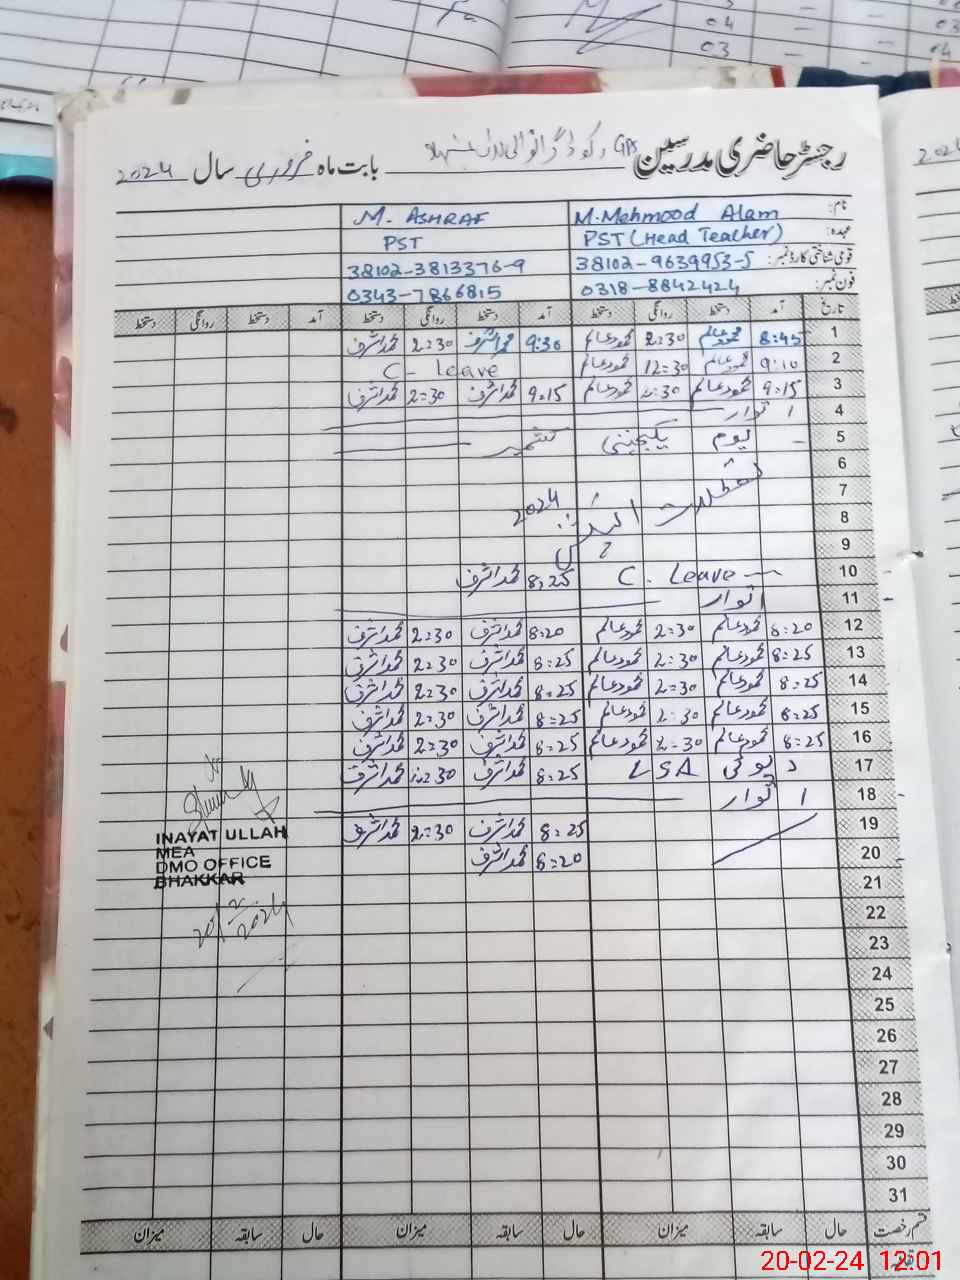 رجسٹر حاضری مدرسین GPS بابت ماہ فروری سال 2024
نام: M. Mehmood Alam M. ASHRAF
عہدہ: PST (Head Teacher) PST
قومی شناختی کارڈ نمبر: 38102-9639953-5 38102-3813376-9
فون نمبر: 0318-8842424 0343-7866815
تاریخ آمد دستخط روانگی دستخط آمد دستخط روانگی دستخط آمد دستخط روانگی دستخط
1 8:45 محمود عالم 2:30 محمود عالم 9:30 محمد اشرف 2:30 محمد اشرف
2 9:10 محمود عالم 12:30 محمود عالم C- leave
3 9:15 محمود عالم 2:30 محمود عالم 9:15 محمد اشرف 2:30 محمد اشرف
4 اتوار
5 یوم یکجہتی کشمیر
6
7 تعطیلات الیکشن 2024
8
9
10 C. Leave 8:25 محمد اشرف
11 اتوار
12 8:20 محمود عالم 2:30 محمود عالم 8:20 محمد اشرف 2:30 محمد اشرف
13 8:25 محمود عالم 2:30 محمود عالم 8:25 محمد اشرف 2:30 محمد اشرف
14 8:25 محمود عالم 2:30 محمود عالم 8:25 محمد اشرف 2:30 محمد اشرف
15 8:25 محمود عالم 2:30 محمود عالم 8:25 محمد اشرف 2:30 محمد اشرف
16 8:25 محمود عالم 2:30 محمود عالم 8:25 محمد اشرف 2:30 محمد اشرف
17 ڈیوٹی LSA 8:25 محمد اشرف 2:30 محمد اشرف
18 اتوار
19 8:25 محمد اشرف 2:30 محمد اشرف
20 8:20 محمد اشرف
21
22
23
24
25
26
27
28
29
30
31
INAYAT ULLAH
MEA
DMO OFFICE
BHAKKAR
20/2/2024
قسم رخصت حال سابقہ میزان حال سابقہ میزان حال سابقہ میزان
20-02-24 12:01